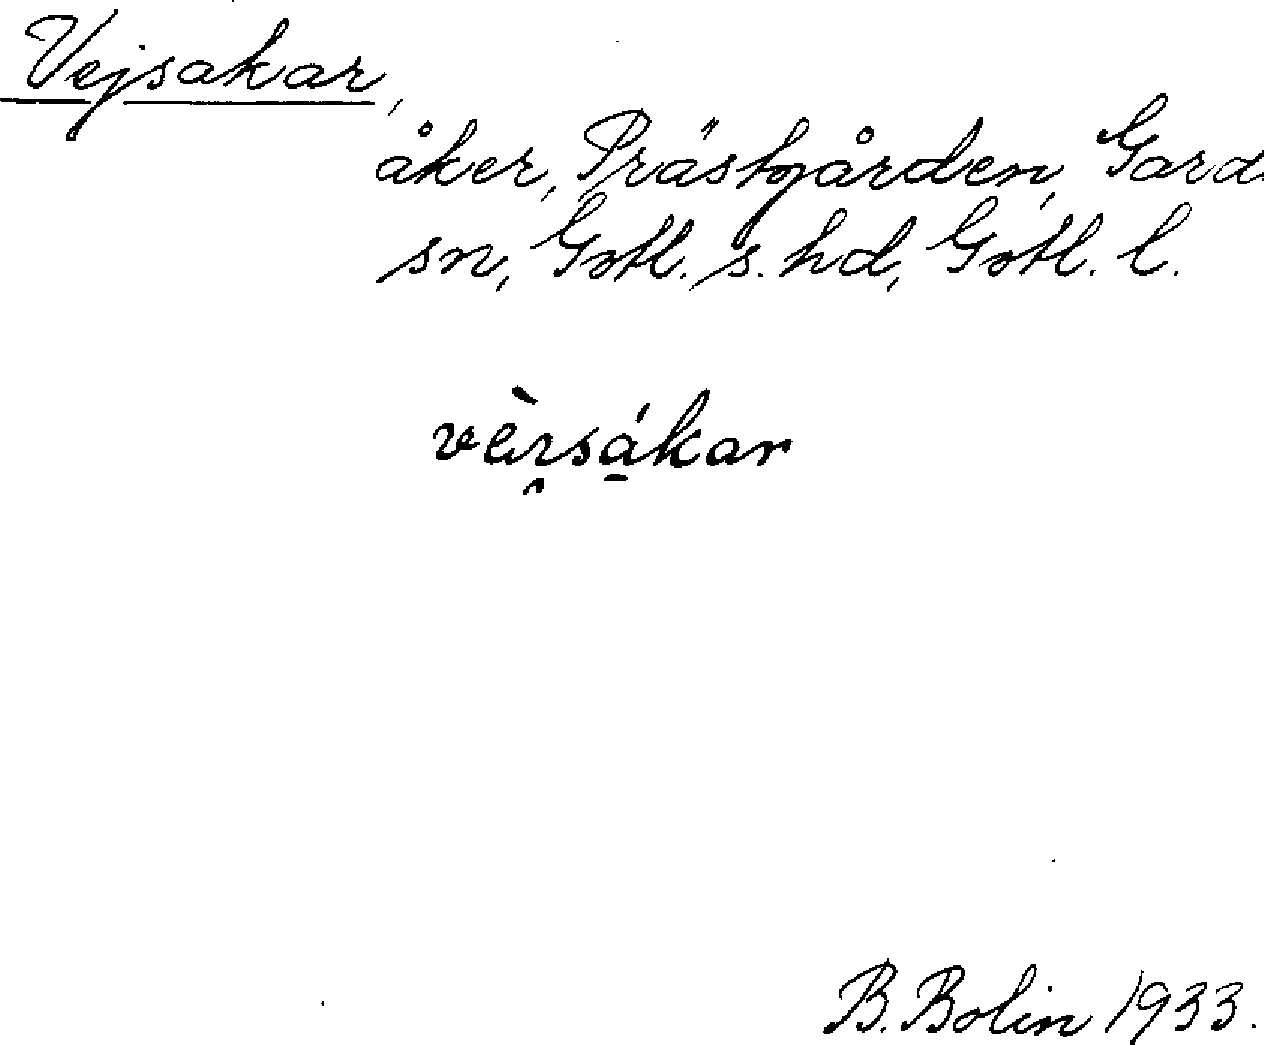 Vejsakar,
åker, Prästgården, Garda
sn, Gotl. s. hd, Gotl. l.
vèɪ̯sá̱kar
B. Bolin 1933.